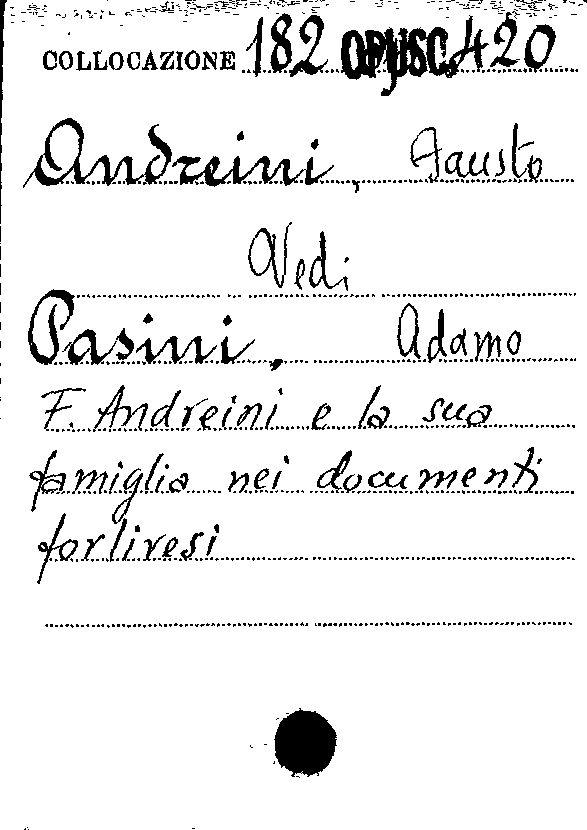 COLLOCAZIONE 182 OPUSC. 420
Andreini, Fausto
Vedi
Pasini, Adamo
F. Andreini e la sua
famiglia nei documenti
forlivesi